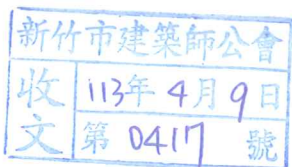 新竹市建築師公會
收文
113年4月9日
第0417號